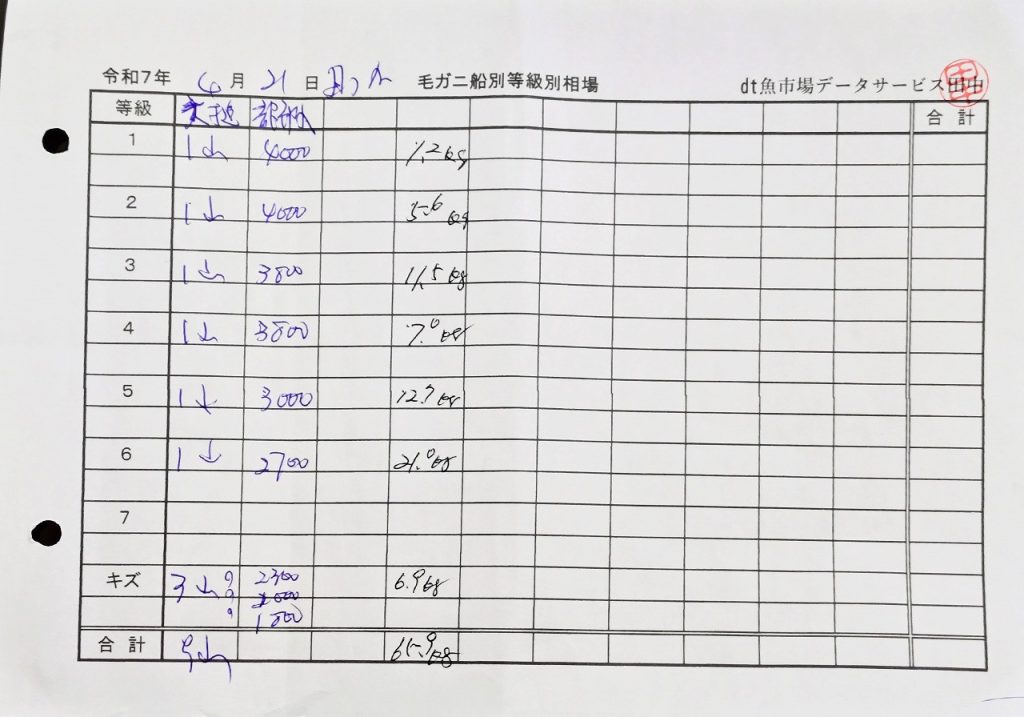 令和7年 4月 21日 毛ガニ船別等級別相場 dt魚市場データサービス田中
等級 合計
1 1山 4000 1.2kg
2 1山 4000 5.6kg
3 1山 3800 11.5kg
4 1山 3800 7.0kg
5 1山 3000 12.7kg
6 1山 2700 21.0kg
7
キズ 3山 2300 6.9kg
1800
合計 9山 65.9kg